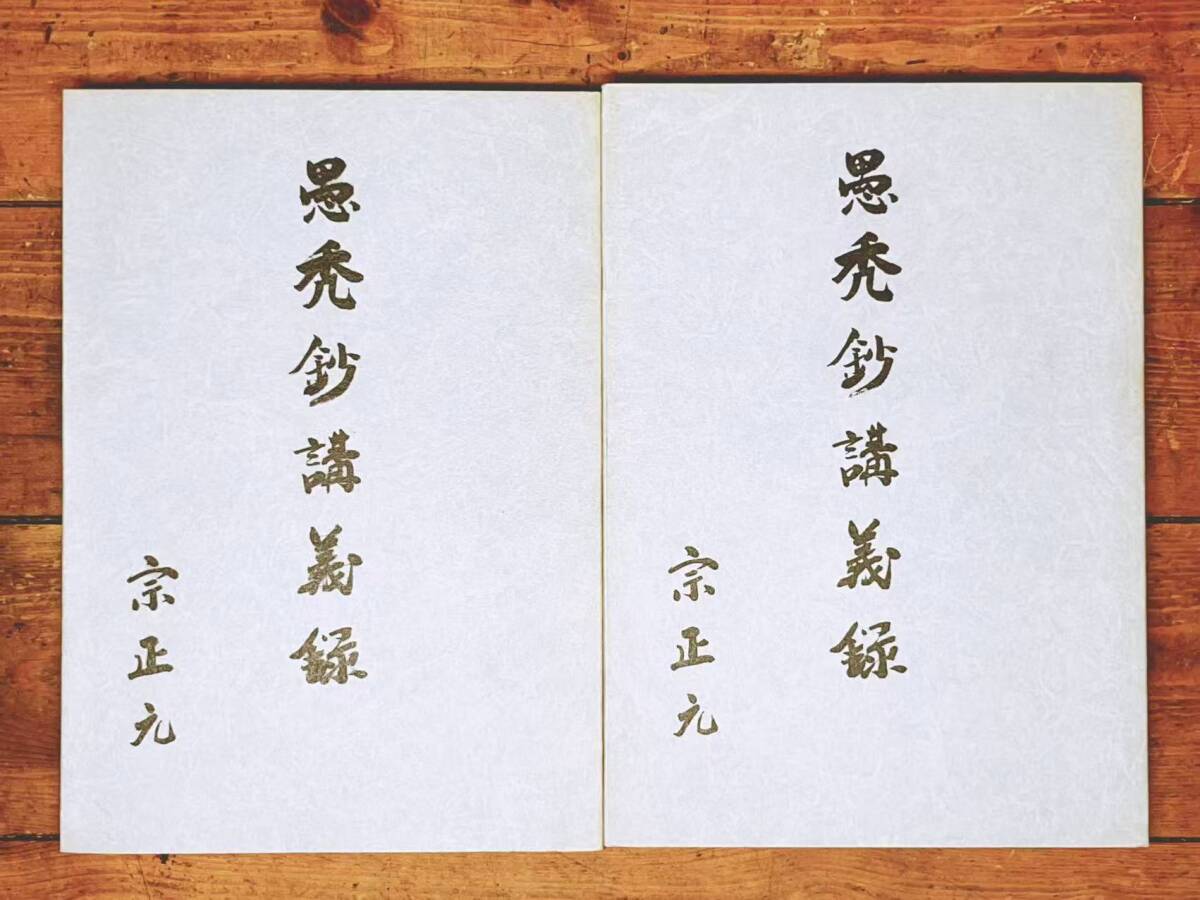 愚禿鈔講義録
宗正元
愚禿鈔講義録
宗正元